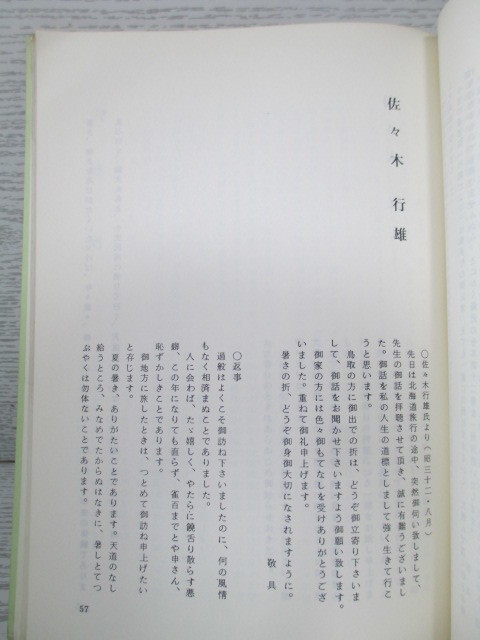 佐々木行雄
○佐々木行雄氏より（昭三十二・八月）
先日は北海道旅行の途中、突然御伺い致しまして、
先生の御話を拝聴させて頂き、誠に有難うございまし
た。御話を私の人生の道標としまして強く生きて行こ
うと思います。
鳥取の方に御出での折は、どうぞ御立寄り下さいま
して、御話をお聞かせ下さいますよう御願い致します。
御家の方には色々御もてなしを受けありがとうござ
いました。重ねて御礼申上げます。
暑さの折、どうぞ御身御大切になされますように。
敬具
○返事
過般はよくこそ御訪ね下さいましたのに、何の風情
もなく相済まぬことでありました。
人に会わば、たゞ嬉しく、やたらに饒舌り散らす悪
癖、この年になりても直らず、雀百までとや申さん、
恥ずかしきことであります。
御地方に旅したときは、つとめて御訪ね申上げたい
と存じます。
夏の暑き、ありがたいことであります。天道のなし
給うところ、みなめでたからぬはなきに、暑しとてつ
ぶやくは勿体ないことであります。
57